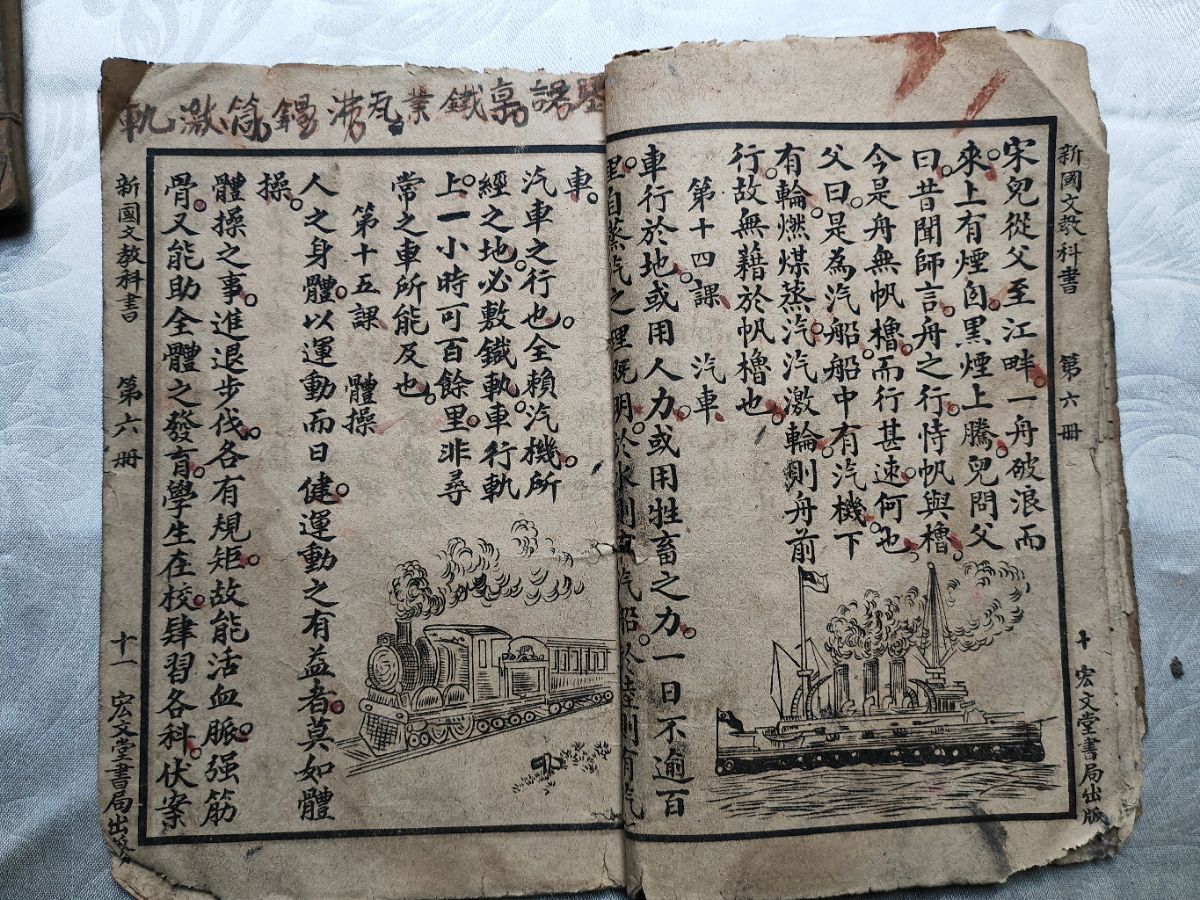 新國文教科書 第六冊 十 宏文堂書局出版
宋兒從父至江畔。一舟破浪而
來。上有煙囱。黑煙上騰。兒問父
曰。昔聞師言。舟之行。恃帆與櫓。
今是舟無帆櫓。而行甚速。何也。
父曰。是為汽船。船中有汽機。下
有輪。燃煤蒸汽。汽激輪。則舟前
行。故無藉於帆櫓也。
第十四課 汽車
車行於地。或用人力。或用牲畜之力。一日不逾百
里。自蒸汽之理既明。於水則有汽船。於陸則有汽
車。
汽車之行也。全賴汽機。所
經之地。必敷鐵軌。車行軌
上。一小時可百餘里。非尋
常之車所能及也。
第十五課 體操
人之身體。以運動而日健。運動之有益者。莫如體
操。
體操之事。進退步伐。各有規矩。故能活血脈。强筋
骨。又能助全體之發育。學生在校。肆習各科。伏案
新國文教科書 第六冊 十一 宏文堂書局出版
課 鐵業 沸鍋筒激軌